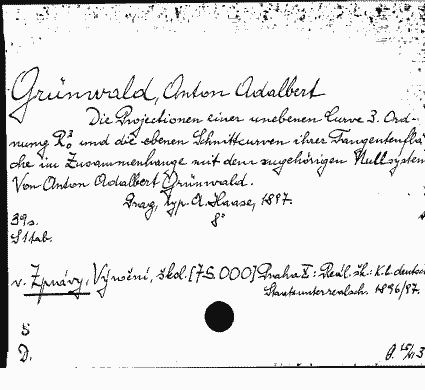 Grünwald, Anton Adalbert
Die Projectionen einer unebenen Curve 3. Ord-
nung R₀³ und die ebenen Schnittcurven ihrer Tangentenflä
che im Zusammenhange mit dem zugehörigen Nullsystem
Von Anton Adalbert Grünwald.
Prag, typ. A. Haase, 1897.
39s. 8°
5 tab.
v. Zprávy, Výroční, škol. [75.000] Praha II: Reál. šk.: K.k. deutsch
Staatsunterrealsch. 1896/97.
S
D.